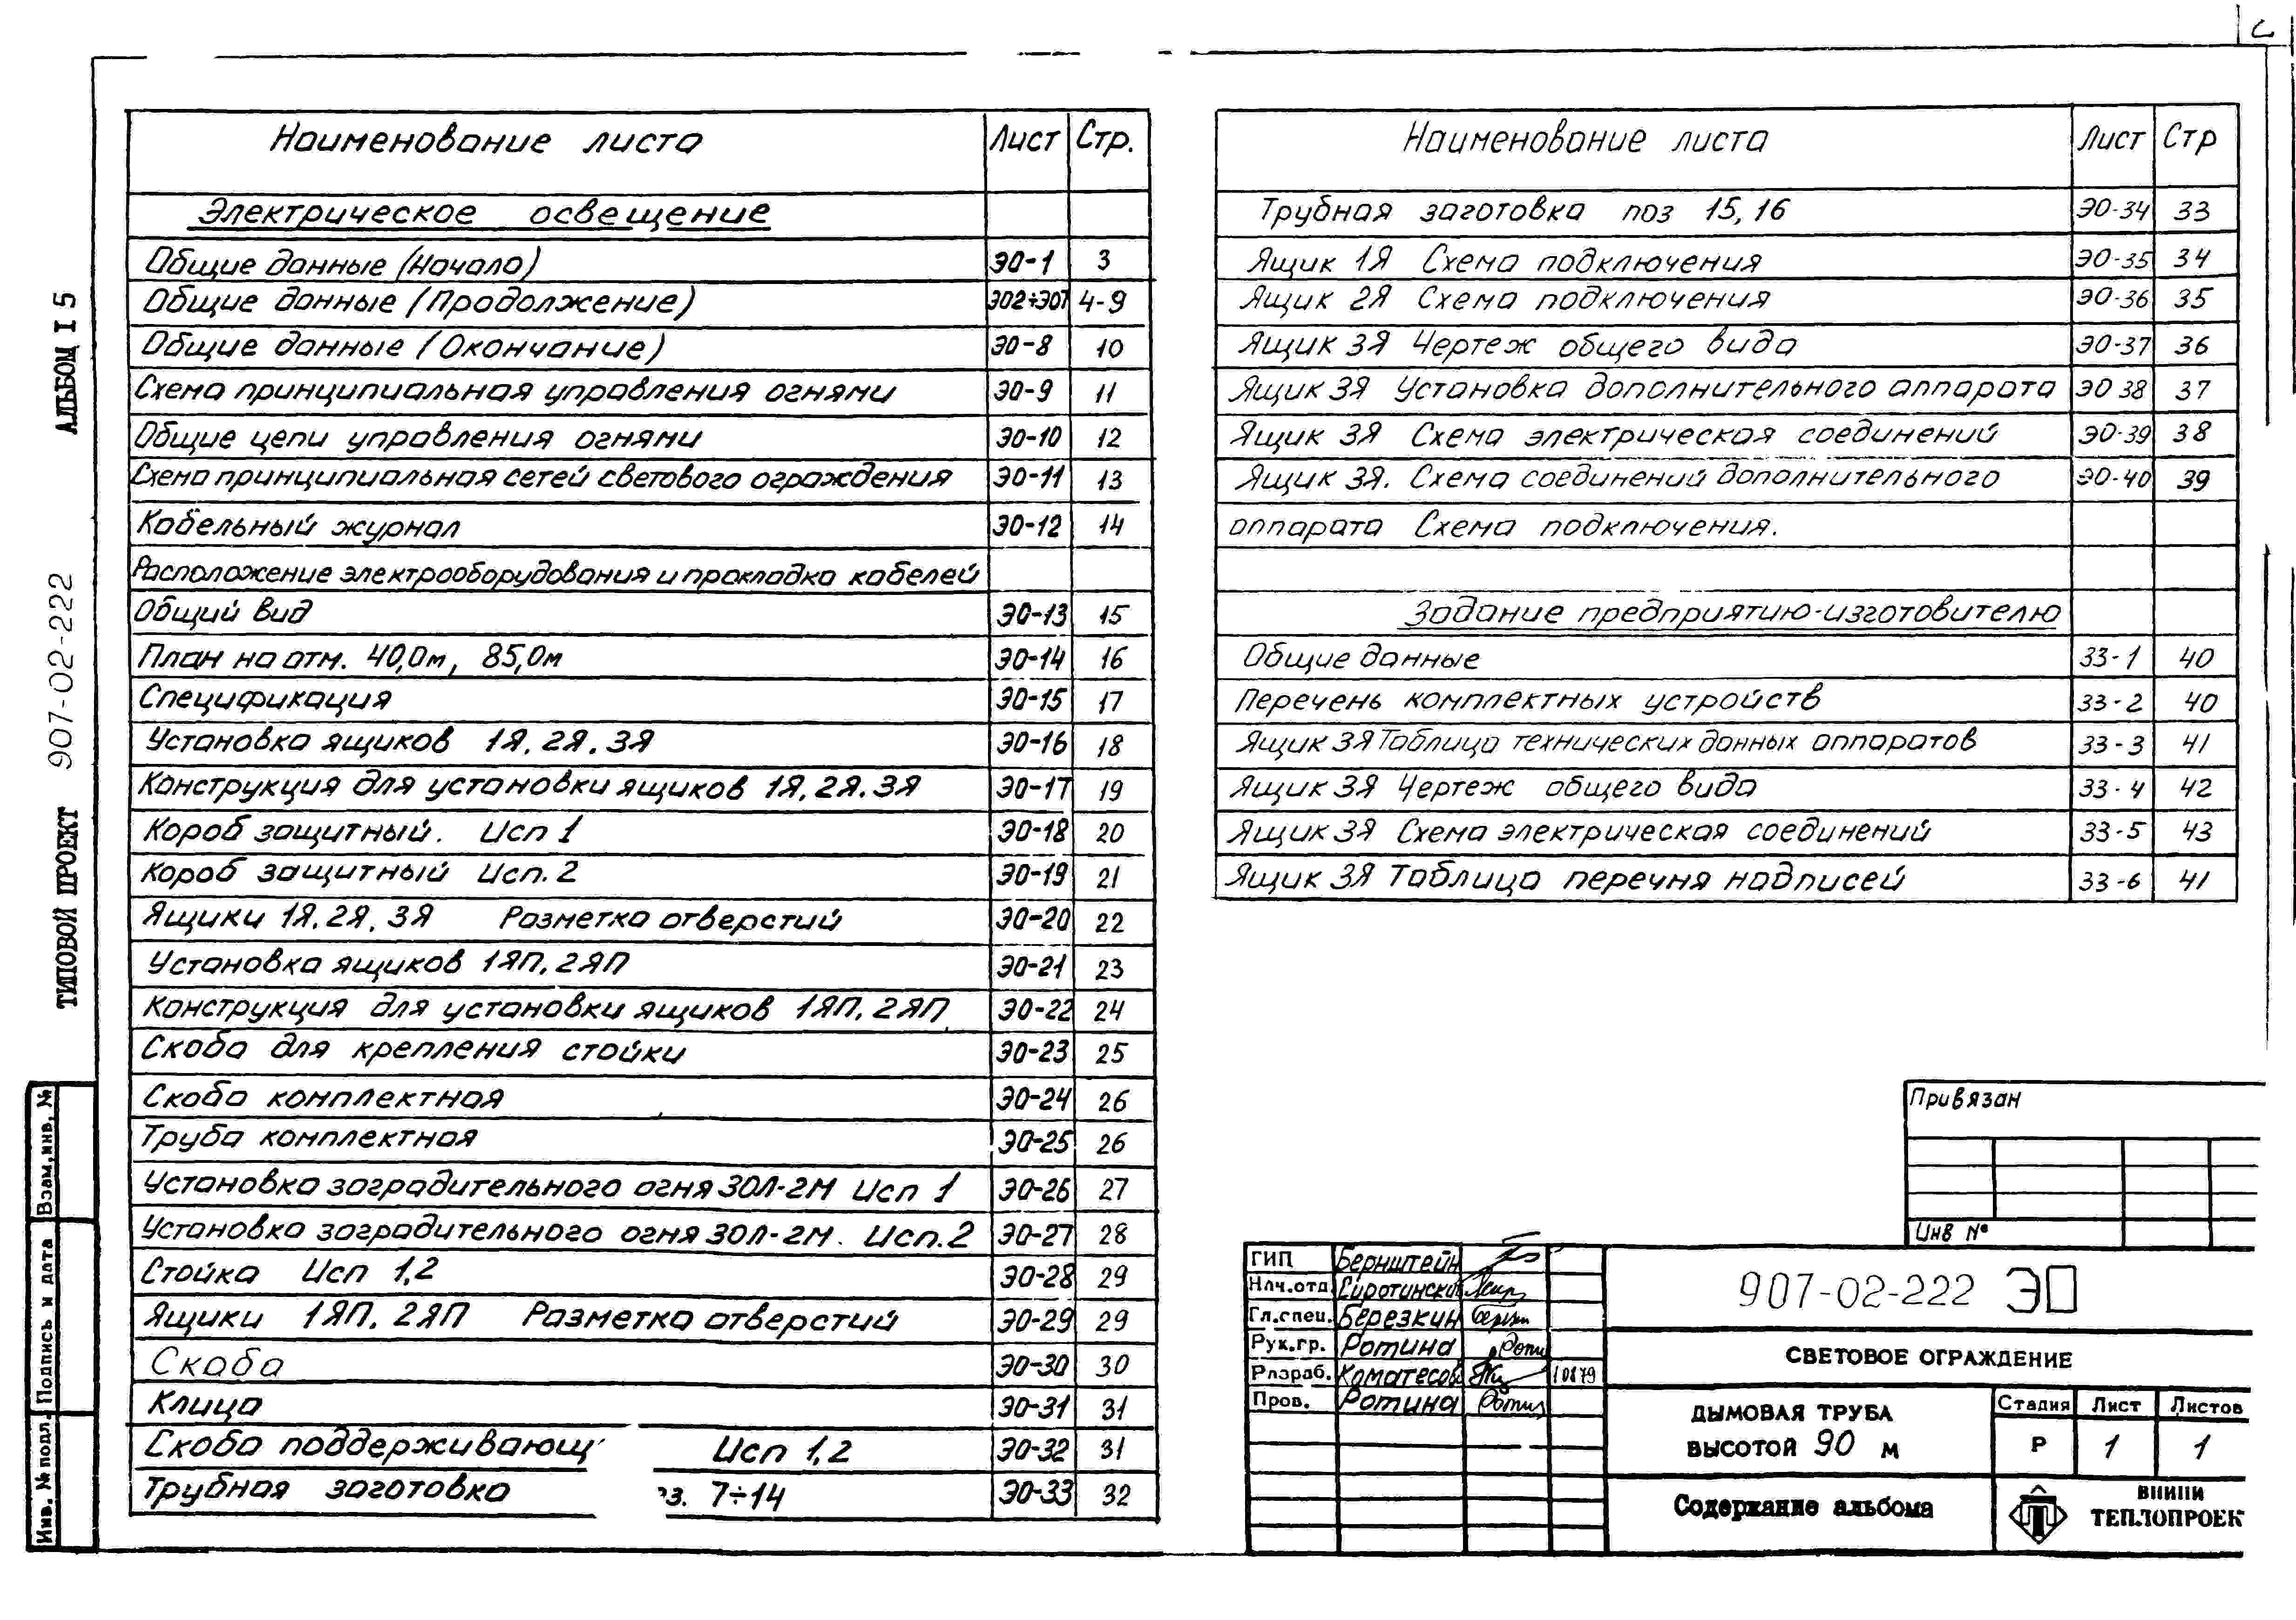 Наименование листа Лист Стр.
Электрическое освещение
Общие данные (Начало) ЭО-1 3
Общие данные (Продолжение) ЭО2÷ЭО7 4-9
Общие данные (Окончание) ЭО-8 10
Схема принципиальная управления огнями ЭО-9 11
Общие цепи управления огнями ЭО-10 12
Схема принципиальная сетей светового ограждения ЭО-11 13
Кабельный журнал ЭО-12 14
Расположение электрооборудования и прокладка кабелей
Общий вид ЭО-13 15
План на отм. 40,0м, 85,0м ЭО-14 16
Спецификация ЭО-15 17
Установка ящиков 1Я, 2Я, 3Я ЭО-16 18
Конструкция для установки ящиков 1Я, 2Я. 3Я ЭО-17 19
Короб защитный. Исп 1 ЭО-18 20
Короб защитный Исп. 2 ЭО-19 21
Ящики 1Я, 2Я, 3Я Разметка отверстий ЭО-20 22
Установка ящиков 1ЯП, 2ЯП ЭО-21 23
Конструкция для установки ящиков 1ЯП, 2ЯП ЭО-22 24
Скоба для крепления стойки ЭО-23 25
Скоба комплектная ЭО-24 26
Труба комплектная ЭО-25 26
Установка заградительного огня ЗОЛ-2М Исп 1 ЭО-26 27
Установка заградительного огня ЗОЛ-2М. Исп. 2 ЭО-27 28
Стойка Исп 1,2 ЭО-28 29
Ящики 1ЯП, 2ЯП Разметка отверстий ЭО-29 29
Скоба ЭО-30 30
Клица ЭО-31 31
Скоба поддерживающ Исп 1,2 ЭО-32 31
Трубная заготовка з. 7÷14 ЭО-33 32
Наименование листа Лист Стр
Трубная заготовка поз 15, 16 ЭО-34 33
Ящик 1Я Схема подключения ЭО-35 34
Ящик 2Я Схема подключения ЭО-36 35
Ящик 3Я Чертеж общего вида ЭО-37 36
Ящик 3Я Установка дополнительного аппарата ЭО 38 37
Ящик 3Я Схема электрическая соединений ЭО-39 38
Ящик 3Я. Схема соединений дополнительного ЭО-40 39
аппарата Схема подключения.
Задание предприятию-изготовителю
Общие данные ЗЗ-1 40
Перечень комплектных устройств ЗЗ-2 40
Ящик 3Я Таблица технических данных аппаратов ЗЗ-3 41
Ящик 3Я Чертеж общего вида ЗЗ-4 42
Ящик 3Я Схема электрическая соединений ЗЗ-5 43
Ящик 3Я Таблица перечня надписей ЗЗ-6 41
ТИПОВОЙ ПРОЕКТ 907-02-222 АЛЬБОМ I 5
Инв. № подл. Подпись и дата Взам.инв. №
Привязан
Инв №
ГИП Бернштейн
Нач.отд. Сиротинский
Гл.спец. Березкин
Рук.гр. Ротина
Разраб. Коматесов 10879
Пров. Ротина
907-02-222 ЭО
СВЕТОВОЕ ОГРАЖДЕНИЕ
ДЫМОВАЯ ТРУБА
ВЫСОТОЙ 90 м
Стадия Лист Листов
Р 1 1
Содержание альбома
ВНИПИ
ТЕПЛОПРОЕК